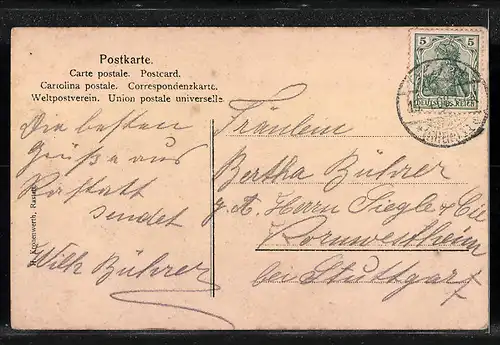 Postkarte.
Carte postale. Postcard.
Cartolina postale. Correspondenzkarte.
Weltpostverein. Union postale universelle.
Die besten
Grüße aus
Rastatt
sendet
Wilh Bührer
Fräulein
Bertha Bührer
z. A. Herrn Siegle & Cie
Kornwestheim
bei Stuttgart
5 5
DEUTSCHES REICH
Kronenwerth, Rastatt